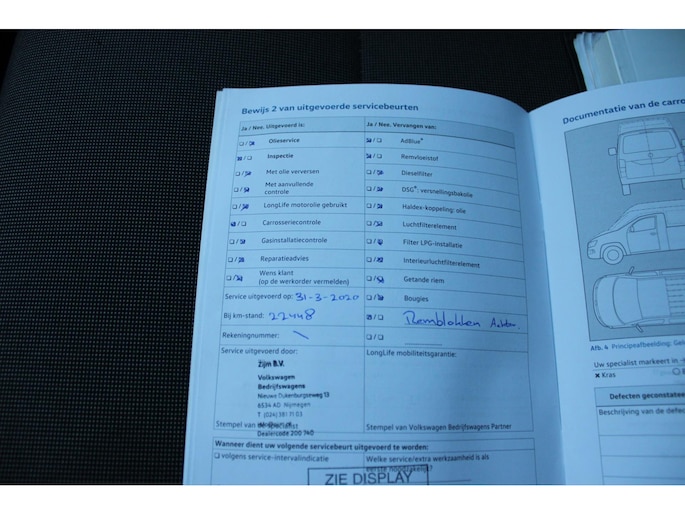 Bewijs 2 van uitgevoerde servicebeurten
Ja / Nee, Uitgevoerd is:
Olieservice
Inspectie
Met olie verversen
Met aanvullende
controle
LongLife motorolie gebruikt
Carrosseriecontrole
Gasinstallatiecontrole
Reparatieadvies
Wens klant
(op de werkorder vermelden)
Ja / Nee, Vervangen van:
AdBlue®
Remvloeistof
Dieselfilter
DSG®; versnellingsbakolie
Haldex-koppeling; olie
Luchtfilterelement
Filter LPG-installatie
Interieurluchtfilterelement
Getande riem
Bougies
Remblokken Achter.
Service uitgevoerd op: 31-3-2020
Bij km-stand: 22448
Rekeningnummer:
Service uitgevoerd door:
Zijm B.V.
Volkswagen
Bedrijfswagens
Nieuwe Dukenburgseweg 13
6534 AD Nijmegen
T (024) 381 71 03
Stempel van de specialist
Dealercode 200 740
LongLife mobiliteitsgarantie:
Stempel van Volkswagen Bedrijfswagens Partner
Wanneer dient uw volgende servicebeurt uitgevoerd te worden:
volgens service-intervalindicatie
Welke service/extra werkzaamheid is als
eerste noodzakelijk?
ZIE DISPLAY
Documentatie van de carro
Afb. 4 Principeafbeelding:
Uw specialist markeert in
Kras
Defecten geconstatee
Beschrijving van de defec